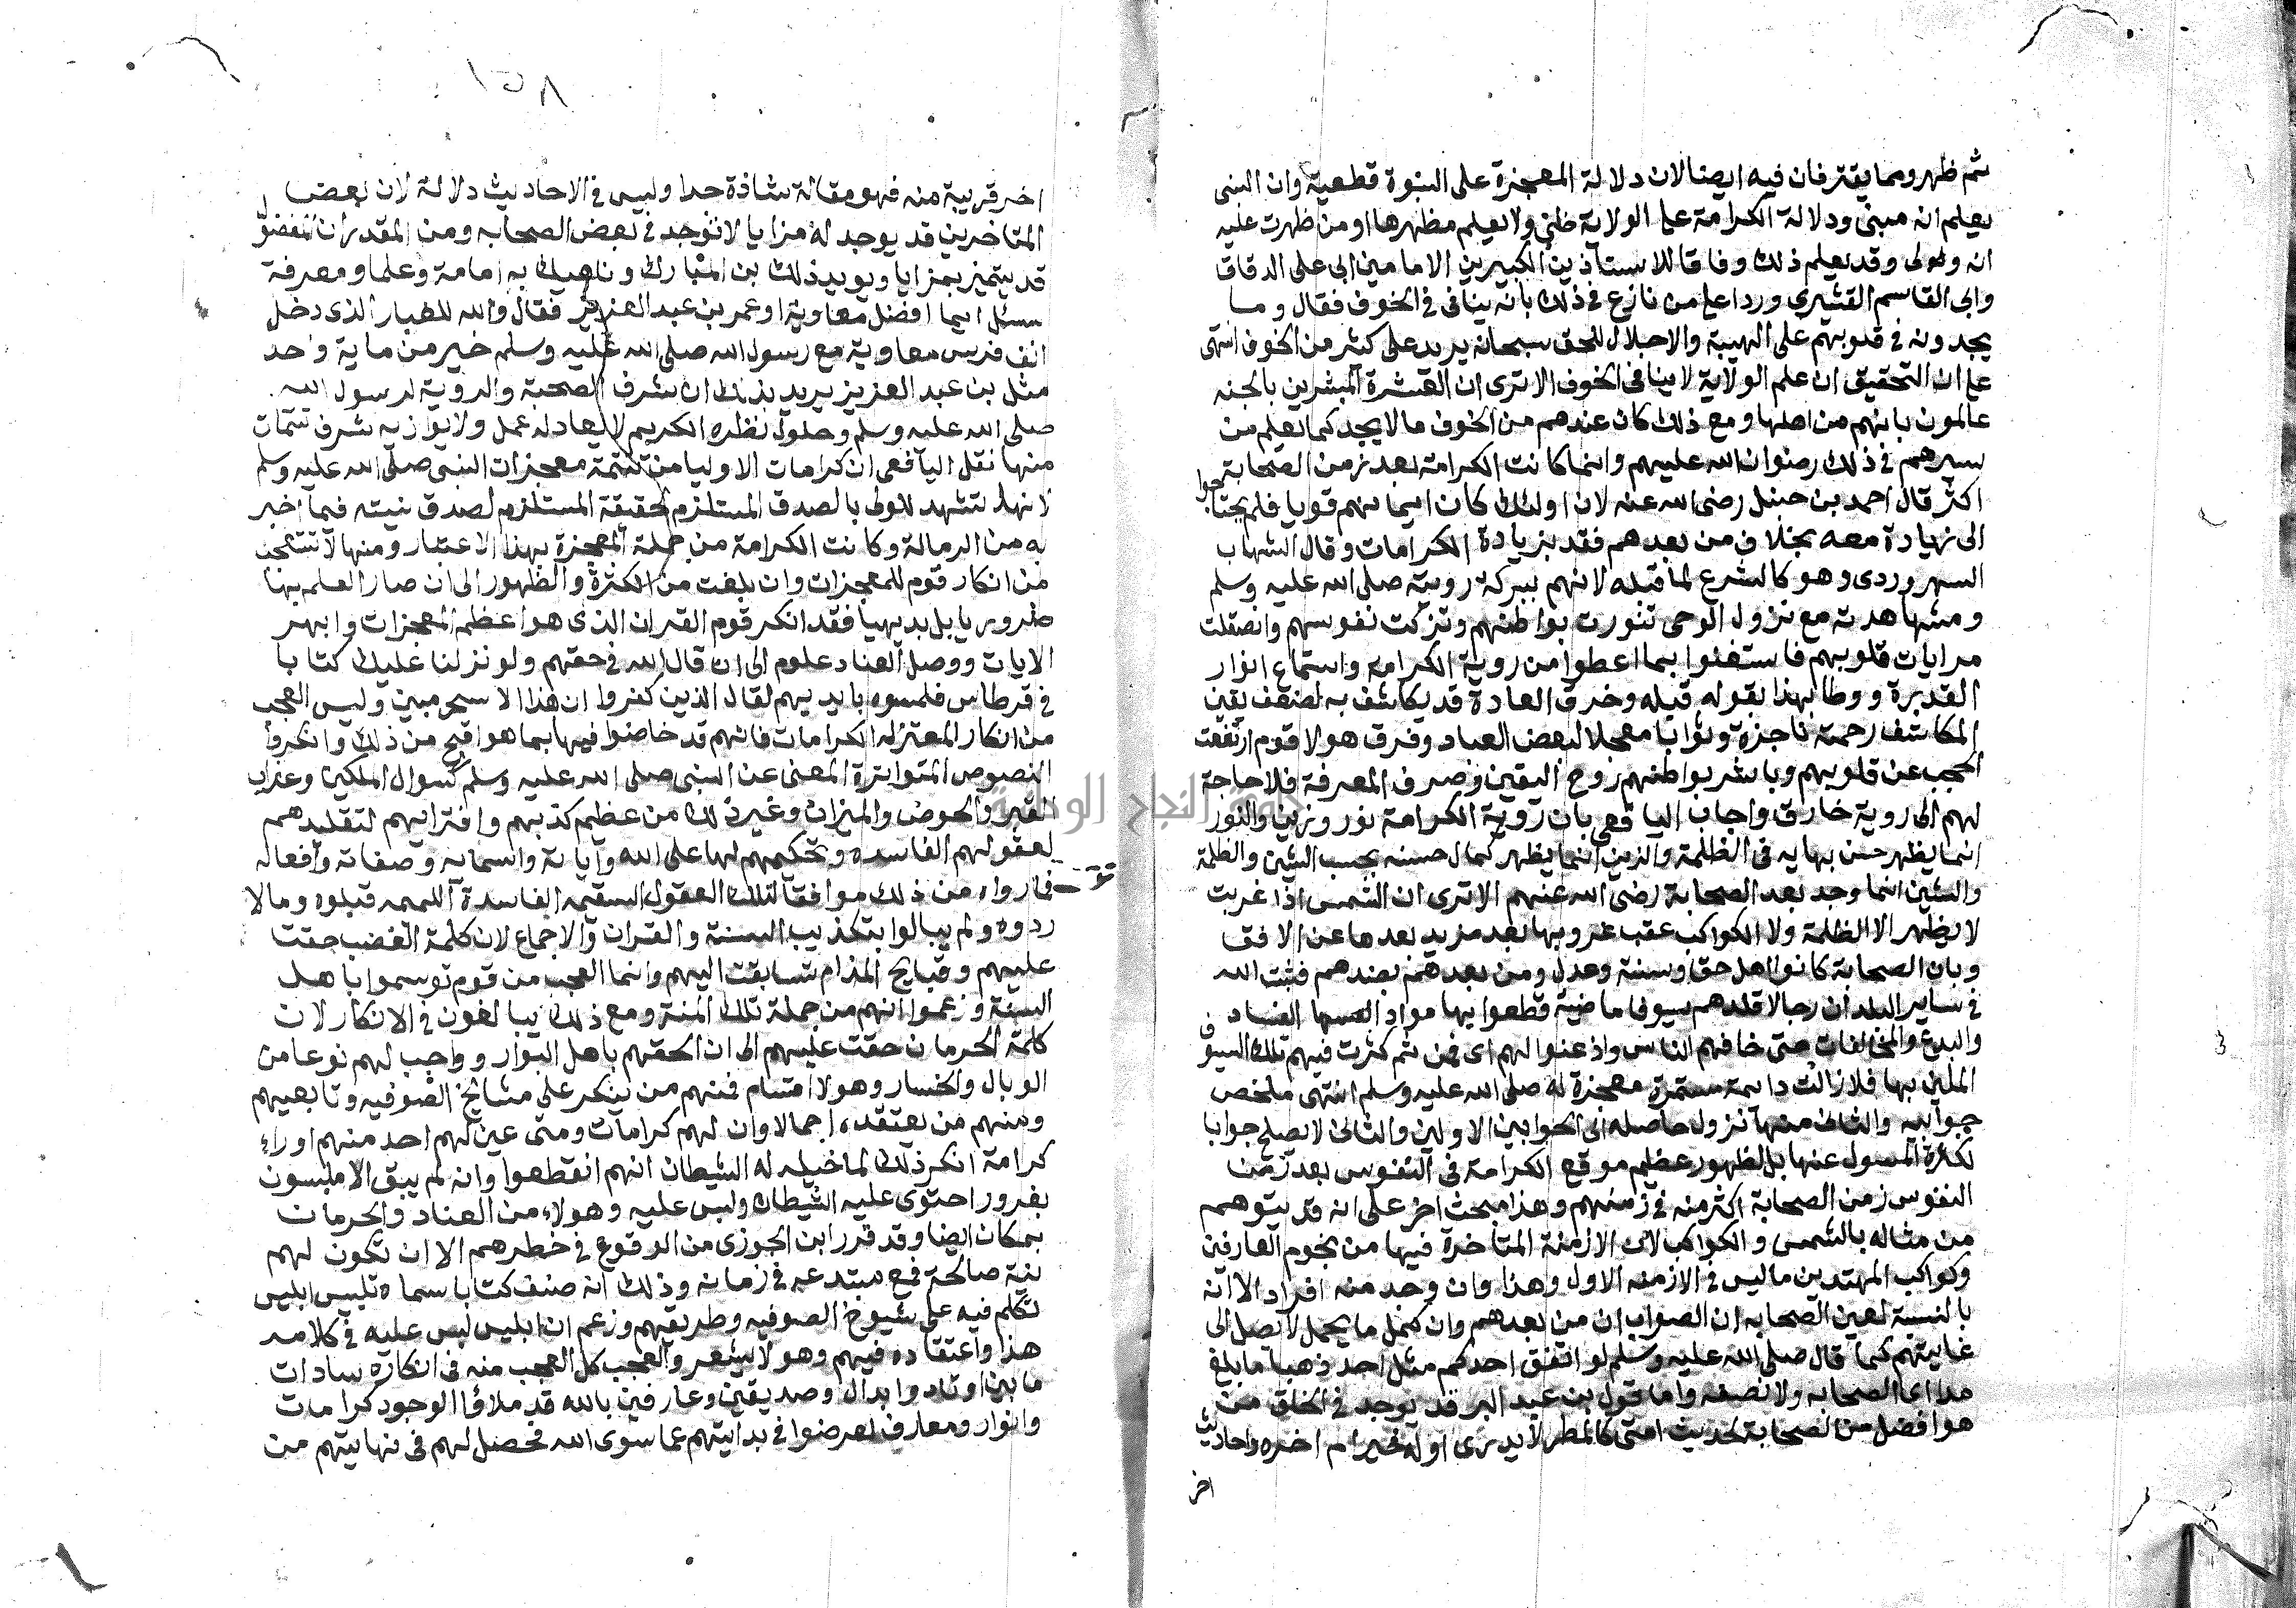 ثم ظهر ومما يفترقان فيه ايضا لان دلالة المعجزة على النبوة قطعية وان النبى
يعلم انه مبنى ودلالة الكرامة على الولاية ظنى ولا يعلم مظهرها او من ظهرت عليه
انه ولى وقد يعلم ذلك وفاقا للاستاذين الكبيرين الامامين ابى على الدقاق
وابى القاسم القشيرى وردا على من نازع فى ذلك بانه ينافى الخوف فقال وما
يجدونه فى قلوبهم على الهيبة والاجلال للحق سبحانه يزيد على كثير من الخوف انتهى
على ان التحقيق ان علم الولاية لا ينافى الخوف الا ترى ان العشرة المبشرين بالجنه
عالمون بانهم من اهلها ومع ذلك كان عندهم من الخوف ما لا يجد كما يعلم من
سيرهم فى ذلك رضوان الله عليهم وانما كانت الكرامة بعد زمن الصحابة
اكثر قال احمد بن حنبل رضى الله عنه لان اولئك كان ايمانهم قويا فلم يحتاجوا
الى زيادة معه بخلاف من بعدهم فقد بزيادة الكرامات وقال الشهاب
السهروردى وهو كالشرع لما قبله لانهم ببركة روية صلى الله عليه وسلم
ومشاهدته مع نزول الوحى تنورت بواطنهم وتزكت نفوسهم وانصقلت
مرايات قلوبهم فاستغنوا بما اعطوا من روية الكرامه واستماع انوار
القديرة ووطا بهذا بقوله قبله وخرق العادة قد يكاشف به لضعف يقين
المكاشف رحمة ناجزة وثوابا معجلا لبعض العباد وفرق هولا قوم ارتفعت
الحجب عن قلوبهم وباشر بواطنهم روح اليقين وصرف المعرفة فلا حاجة
لهم الى روية خارق واجاب اليافعى بان روية الكرامة نور وزينا والنور
انما يظهر حسن بهايه فى الظلمة والزين انما يظهر كمال حسنه بحسب الشين والظلمة
والشين انما وجد بعد الصحابة رضى الله عنهم الا ترى ان الشمس اذا غربت
لا يظهر الا الظلمة ولا الكواكب عقب غروبها بعد مزيد بعدها عن الافق
وبان الصحابة كانوا اهل حق وسنة وعدل ومن بعدهم بضدهم فثبت الله
فى ساير البلدان رجالا قلدهم سيوفا ماضية قطعوا بها مواد الفساد
والبدع والمخالفات حتى خافهم الناس واذعنوا لهم اى فمن ثم كثرت فيهم تلك السيوف
الملين بها فلا زالت دايمة مستمرة معجزة له صلى الله عليه وسلم انتهى ملخص
جوابيه والثانى منها نزول حاصله الى الجوابين الاولين والثانى لا يصلح جوابا
لكثرة المسول عنها بل لظهور عظيم موقع الكرامة فى النفوس بعد زمن
النفوس زمن الصحابة اكثر منه فى زمنهم وهذا مبحث اخر على انه قد يتوهم
من مثاله بالشمس والكواكب لان الازمنة المتاخرة فيها من نجوم العارفين
وكواكب المهتدين ما ليس فى الازمنه الاول وهذا وان وجد منه افراد الا انه
بالنسبة لعين الصحابه ان الصواب ان من بعدهم وان كمل ما يكمل لا يصل الى
غايتهم كما قال صلى الله عليه وسلم لو انفق احدكم مثل احد ذهبا ما بلغ
مد اى الصحابه ولا نصفه واما قول بن عبد البر قد يوجد فى الخلق من
هو افضل من الصحابة لحديث امتى كالمطر لا يدرى اوله خير ام اخره واحاديث
اخر
اخر قريبة منه فهو مقالة شاذة جدا وليس فى الاحاديث دلالة لان بعض
المتاخرين قد يوجد له مزايا لا توجد فى بعض الصحابه ومن المقدر ان المفضول
قد يتميز بمزايا ويويد ذلك بن المبارك وناهيك به امامة وعلما ومعرفة
سئل ايما افضل معاوية او عمر بن عبد العزيز فقال والله للغبار الذى دخل
انف فرس معاوية مع رسول الله صلى الله عليه وسلم خير من ماية واحد
مثل بن عبد العزيز يريد بذلك ان شرف الصحبة والروية لرسول الله
صلى الله عليه وسلم وحلول نظره الكريم لا يعادله عمل ولا يوازيه شرف تتمات
منها نقل اليافعى ان كرامات الاوليا من تتمة معجزات النبى صلى الله عليه وسلم
لانها تشهد للولى بالصدق المستلزم لحقيقة المستلزم لصدق نبيه فيما اخبر
به من الرسالة وكانت الكرامة من جملة المعجزة بهذا الاعتبار ومنها لا تتعجب
من انكار قوم للمعجزات وان بلغت من الكثرة والظهور الى ان صار العلم بها
ضروريا بل بديهيا فقد انكر قوم القران الذى هو اعظم المعجزات وابهر
الايات ووصل العناد علوم الى ان قال الله فى حقهم ولو نزلنا عليك كتابا
فى قرطاس فلمسوه بايديهم لقال الذين كفروا ان هذا الا سحر مبين وليس العجب
من انكار المعتزلة الكرامات فانهم قد خاضوا فيها بما هو اقبح من ذلك وانكروا
النصوص المتواترة المعنى عن النبى صلى الله عليه وسلم كسوال الملكين وعذاب
القبر والحوض والميزان وغير ذلك من عظيم كذبهم وافترايهم لتقليدهم
لعقولهم الفاسده وتحكيمهم لها على الله واياته واسمائه وصفاته وافعاله
فما رواه من ذلك موافقا لتلك العقول السقيمه الفاسدة قبلوه وما لا
ردوه ولم يبالوا بتكذيب السنة والقران والاجماع لان كلمة الغضب حقت
عليهم وقبايح المذام تسابقت اليهم وانما العجب من قوم توسموا باهل
السنة وزعموا انهم من جملة تلك المنة ومع ذلك يبالغون فى الانكار لان
كلمة الحرمان حقت عليهم الى ان الحقتهم باهل البوار وواجب لهم نوعا من
الوبال والخسار وهولا اقسام فمنهم من ينكر على مشايخ الصوفيه وتابعيهم
ومنهم من يعتقده اجمالا وان لهم كرامات ومتى عين لهم احد منهم او راى
كرامة انكر ذلك لما خيله له الشيطان انهم انقطعوا وانه لم يبق الا ملبسون
بغرور احتوى عليه الشيطان ولبس عليه وهولاء من العناد والحرمان
بمكان ايضا وقد قرر ابن الجوزى من الوقوع فى خطرهم الا ان تكون لهم
نية صالحة قمع مبتدعه فى زمانه وذلك انه صنف كتابا سماه تلبيس ابليس
تكلم فيه على شيوخ الصوفيه وطريقهم وزعم ان ابليس لبس عليه فى كلامه
هذا واعتقاده فيهم وهو لا يشعر والعجب كل العجب منه فى انكاره سادات
ما بين اوتاد وابدال وصديقين وعارفين بالله قد ملاوا الوجود كرامات
وانوار ومعارف اعرضوا فى بدايتهم عما سوى الله فحصل لهم فى نهايتهم من
جامعة النجاح الوطنية